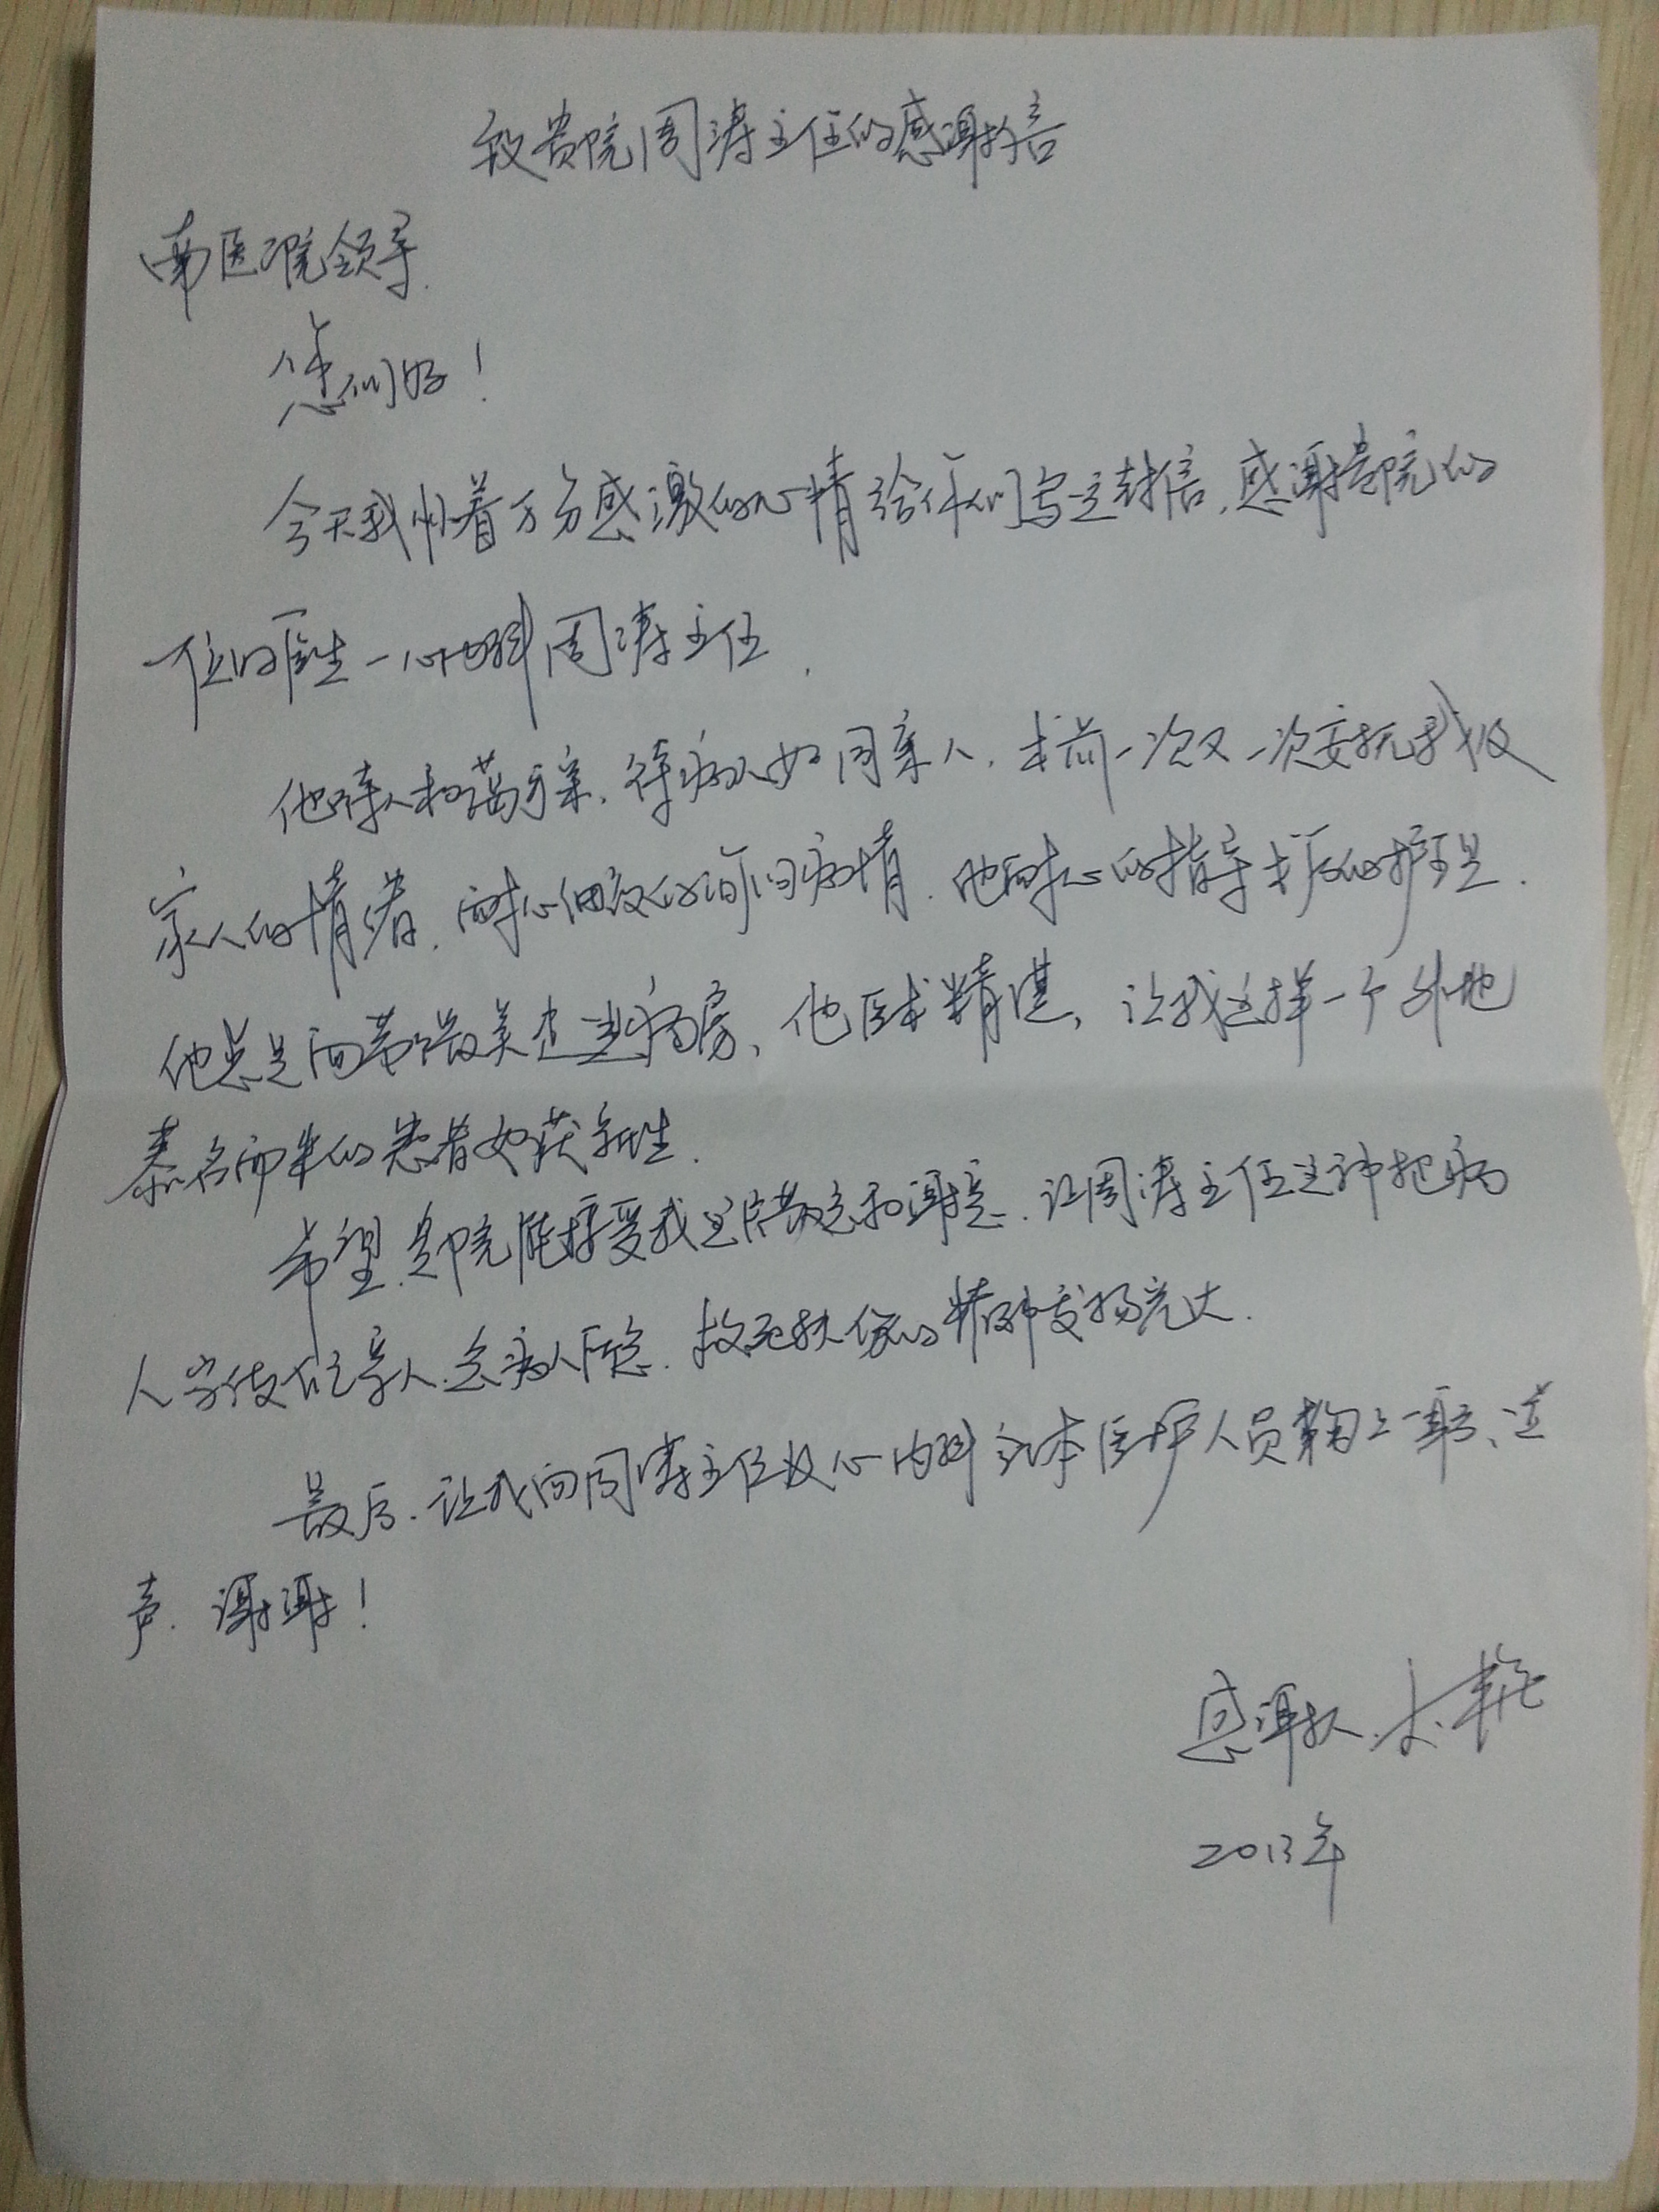 致贵院周涛主任的感谢信
南医院领导.
您们好!
今天我怀着万分感激的心情给你们写这封信,感谢贵院的
一位好医生—心内科周涛主任.
他待人和蔼可亲,待病人如同亲人,术前一次又一次安抚我及
家人的情绪,耐心细致的询问病情,他耐心的指导术后的护理.
他总是面带微笑走进病房、他医术精湛,让我这样一个外地
慕名而来的患者如获新生.
希望贵院能接受我这份敬意和谢意,让周涛主任这种把病
人当做自己亲人、急病人所急、救死扶伤的精神发扬光大.
最后,让我向周涛主任及心内科全体医护人员鞠上一躬、道
声.谢谢!
感谢人.
2013年